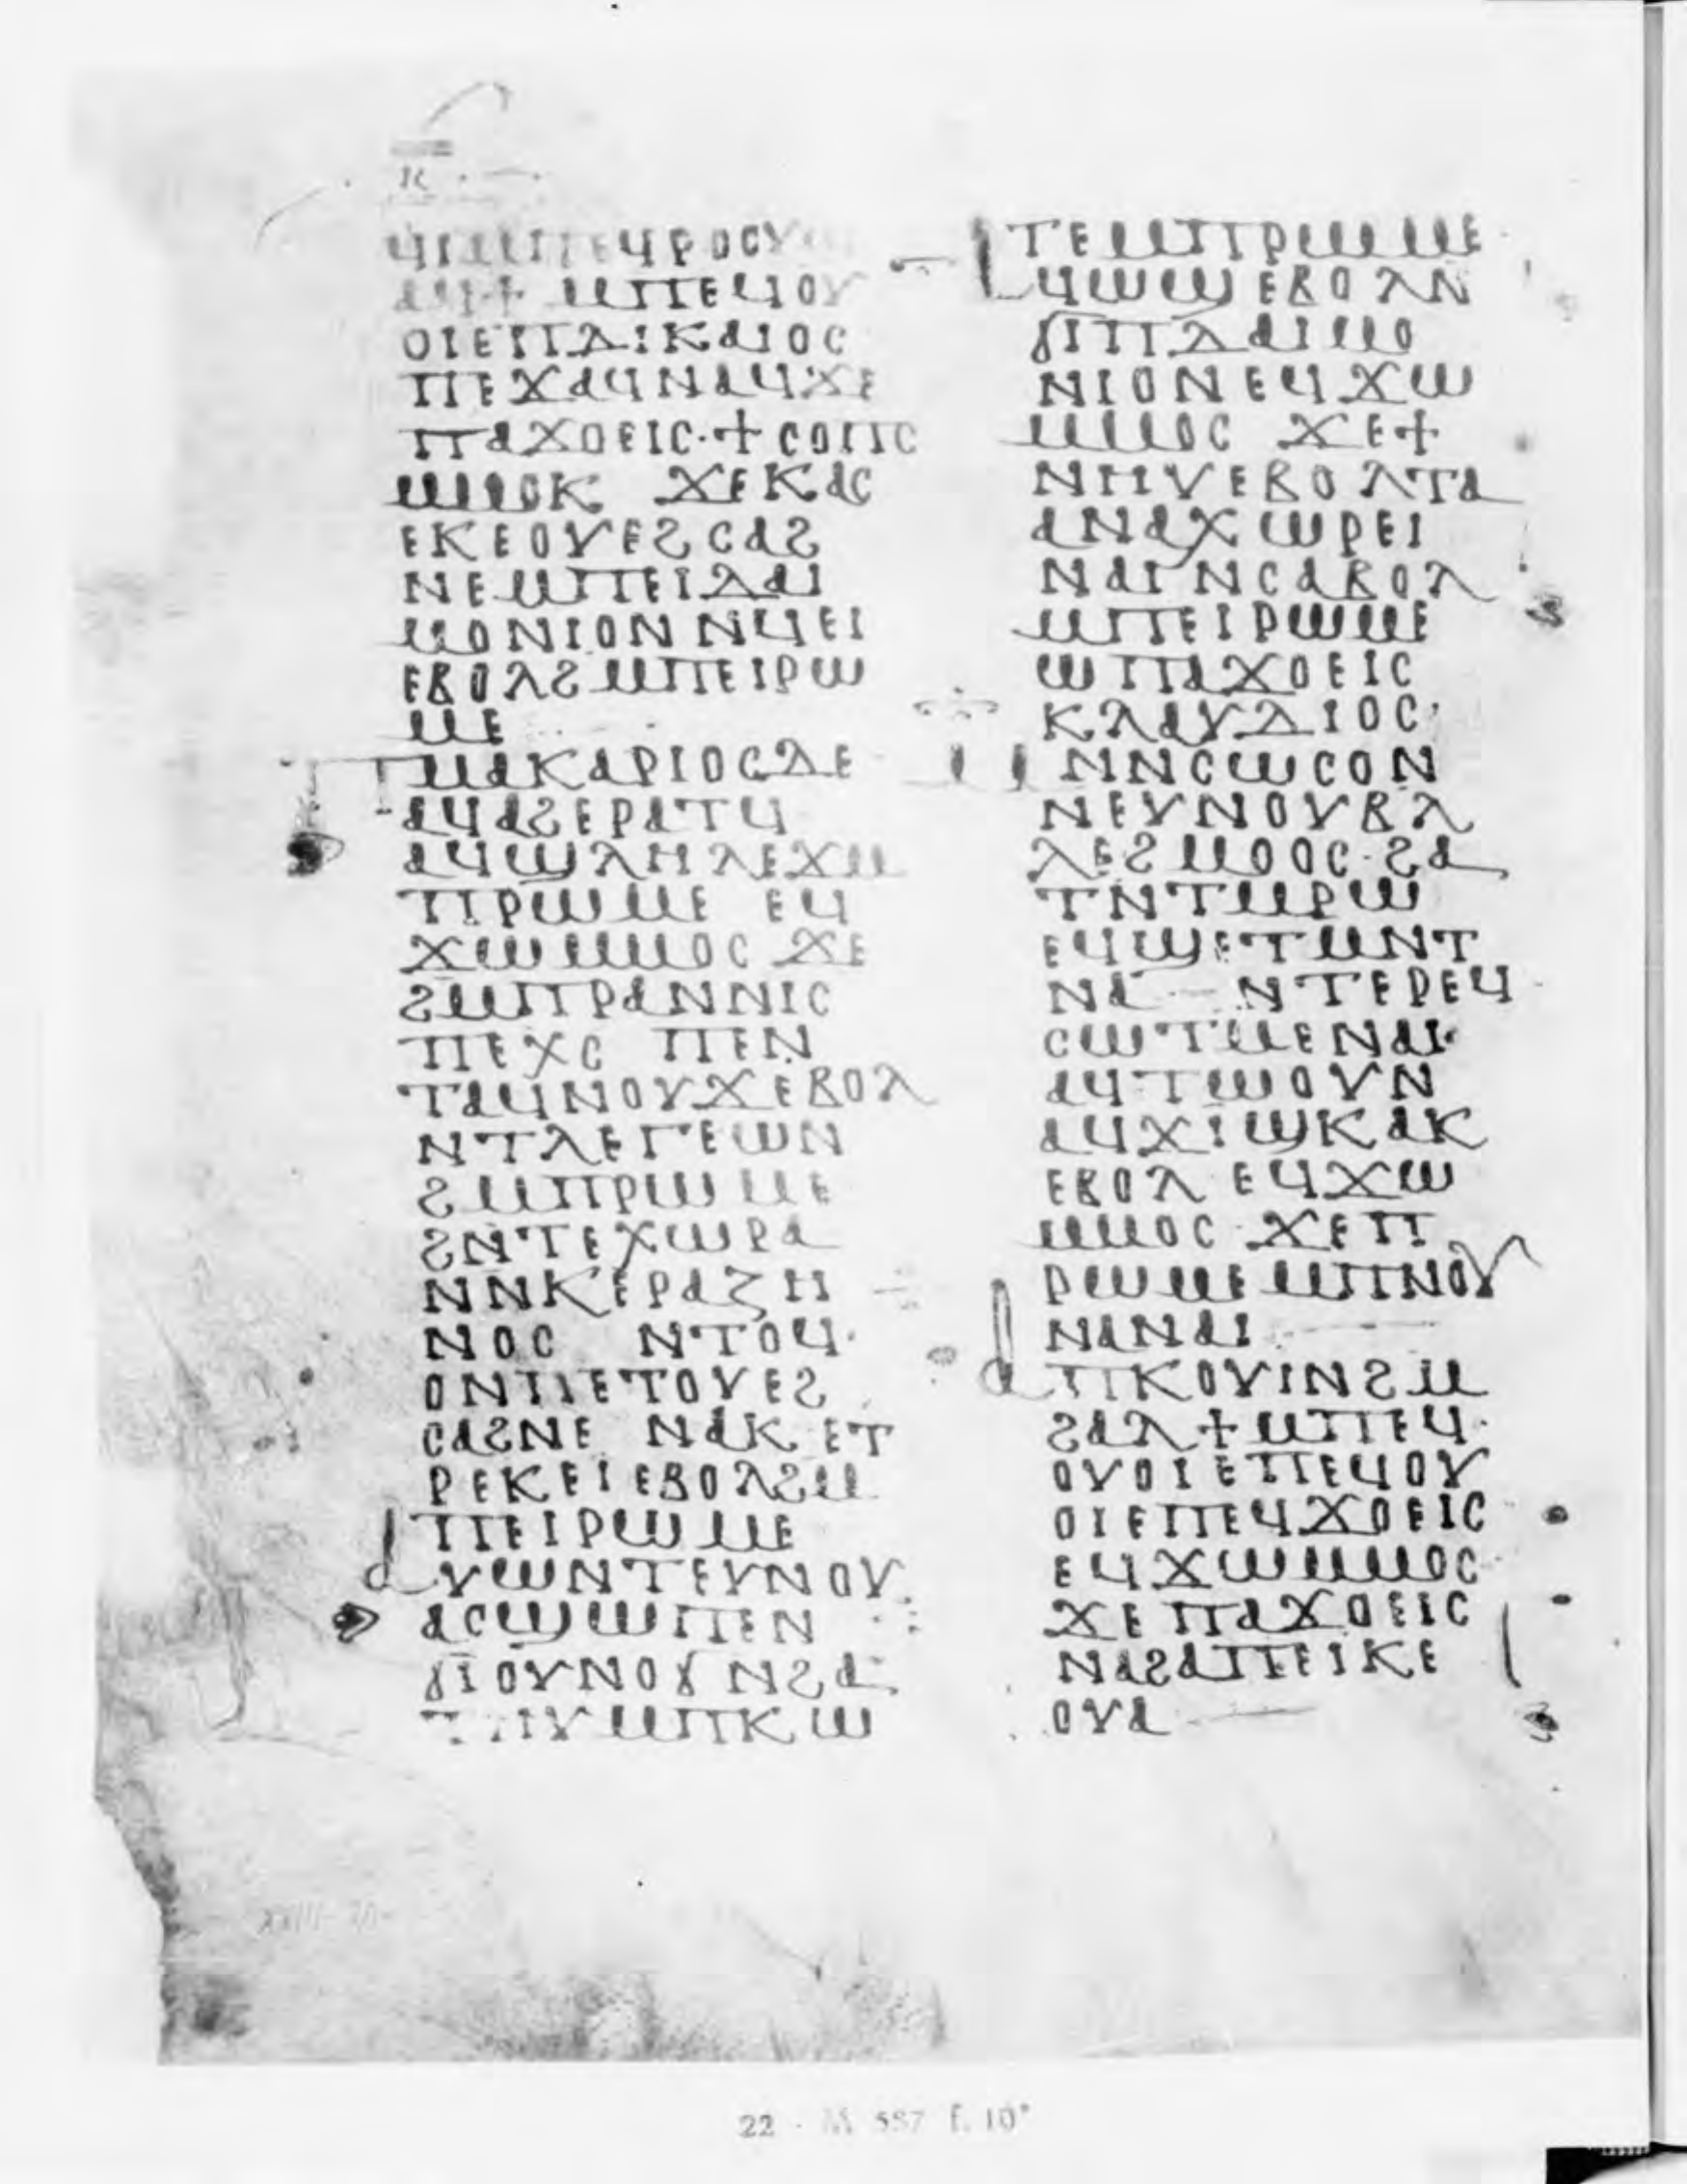 Ϥⲓⲙⲡⲉϥⲣⲟⲟⲩ
ⲁϥϯ ⲙⲡⲉϥⲟⲩ
ⲟⲓⲉⲡⲇⲓⲕⲁⲓⲟⲥ
ⲡⲉϫⲁϥⲛⲁϥϫⲉ
ⲡⲁϫⲟⲉⲓⲥ·ϯⲥⲟⲡⲥ
ⲙⲙⲟⲕ ϫⲉⲕⲁⲥ
ⲉⲕⲉⲟⲩⲉϩⲥⲁϩ
ⲛⲉⲙⲡⲉⲓⲇⲁⲓ
ⲙⲟⲛⲓⲟⲛ ⲛϥⲉⲓ
ⲉⲃⲟⲗϩⲙⲡⲉⲓⲣⲱ
ⲙⲉ
ⲡⲙⲁⲕⲁⲣⲓⲟⲥⲇⲉ
ⲁϥⲁϩⲉⲣⲁⲧϥ
ⲁϥϣⲗⲏⲗⲉϫⲙ
ⲡⲣⲱⲙⲉ ⲉϥ
ϫⲱⲙⲙⲟⲥ ϫⲉ
ϩⲙⲡⲣⲁⲛⲛⲓⲥ
ⲡⲉⲭⲥ ⲡⲉⲛ
ⲧⲁϥⲛⲟⲩϫⲉⲃⲟⲗ
ⲛⲧⲗⲉⲅⲉⲱⲛ
ϩⲙⲡⲣⲱⲙⲉ
ϩⲛⲧⲉⲭⲱⲣⲁ
ⲛⲛⲕⲉⲣⲁⲍⲏ
ⲛⲟⲥ ⲛⲧⲟϥ·
ⲟⲛⲡⲉⲧⲟⲩⲉϩ
ⲥⲁϩⲛⲉ ⲛⲁⲕ ⲉⲧ
ⲣⲉⲕⲉⲓⲉⲃⲟⲗϩⲙ
ⲡⲉⲓⲣⲱⲙⲉ
ⲁⲩⲱⲛⲧⲉⲩⲛⲟⲩ
ⲁⲥϣⲱⲡⲉⲛ
ϭⲓⲟⲩⲛⲟϭ ⲛϩⲁ
ⲧⲏⲩ ⲙⲡⲕⲱ
ⲧⲉⲙⲡⲣⲱⲙⲉ
ⲁϥⲱϣ ⲉⲃⲟⲗⲛ
ϭⲓⲡⲇⲁⲓⲙⲟ
ⲛⲓⲟⲛ ⲉϥϫⲱ
ⲙⲙⲟⲥ ϫⲉϯ
ⲛⲏⲩⲉⲃⲟⲗⲧⲁ
ⲁⲛⲁⲭⲱⲣⲉⲓ
ⲛⲁⲓ ⲛⲥⲁⲃⲟⲗ
ⲙⲡⲉⲓⲣⲱⲙⲉ
ⲱ ⲡⲁϫⲟⲉⲓⲥ
ⲕⲗⲁⲩⲇⲓⲟⲥ·
ⲙⲛⲛⲥⲱⲥⲟⲛ
ⲛⲉⲩⲛⲟⲩⲃⲗ
ⲗⲉϩⲙⲟⲟⲥ·ϩⲁ
ⲧⲛⲧⲙⲣⲱ
ⲉϥϣⲉⲧⲙⲛⲧ
ⲛⲁ ⲛⲧⲉⲣⲉϥ
ⲥⲱⲧⲙⲉⲛⲁⲓ·
ⲁϥⲧⲱⲟⲩⲛ
ⲁϥϫⲓϣⲕⲁⲕ
ⲉⲃⲟⲗ ⲉϥϫⲱ
ⲙⲙⲟⲥ ϫⲉⲡ
ⲣⲱⲙⲉ ⲙⲡⲛⲟⲩ
ⲛⲁⲛⲁⲓ
ⲁⲡⲕⲟⲩⲓⲛϩⲙ
ϩⲁⲗ ϯⲙⲡⲉϥ·
ⲟⲩⲟⲓ ⲉⲡⲉϥⲟⲩ
ⲟⲓⲉⲡⲉϥϫⲟⲉⲓⲥ
ⲉϥϫⲱⲙⲙⲟⲥ
ϫⲉ ⲡⲁϫⲟⲉⲓⲥ
ⲛⲁϩⲁⲡⲉⲓⲕⲉ
ⲟⲩⲁ
22 - M 587 f. 10ᵛ